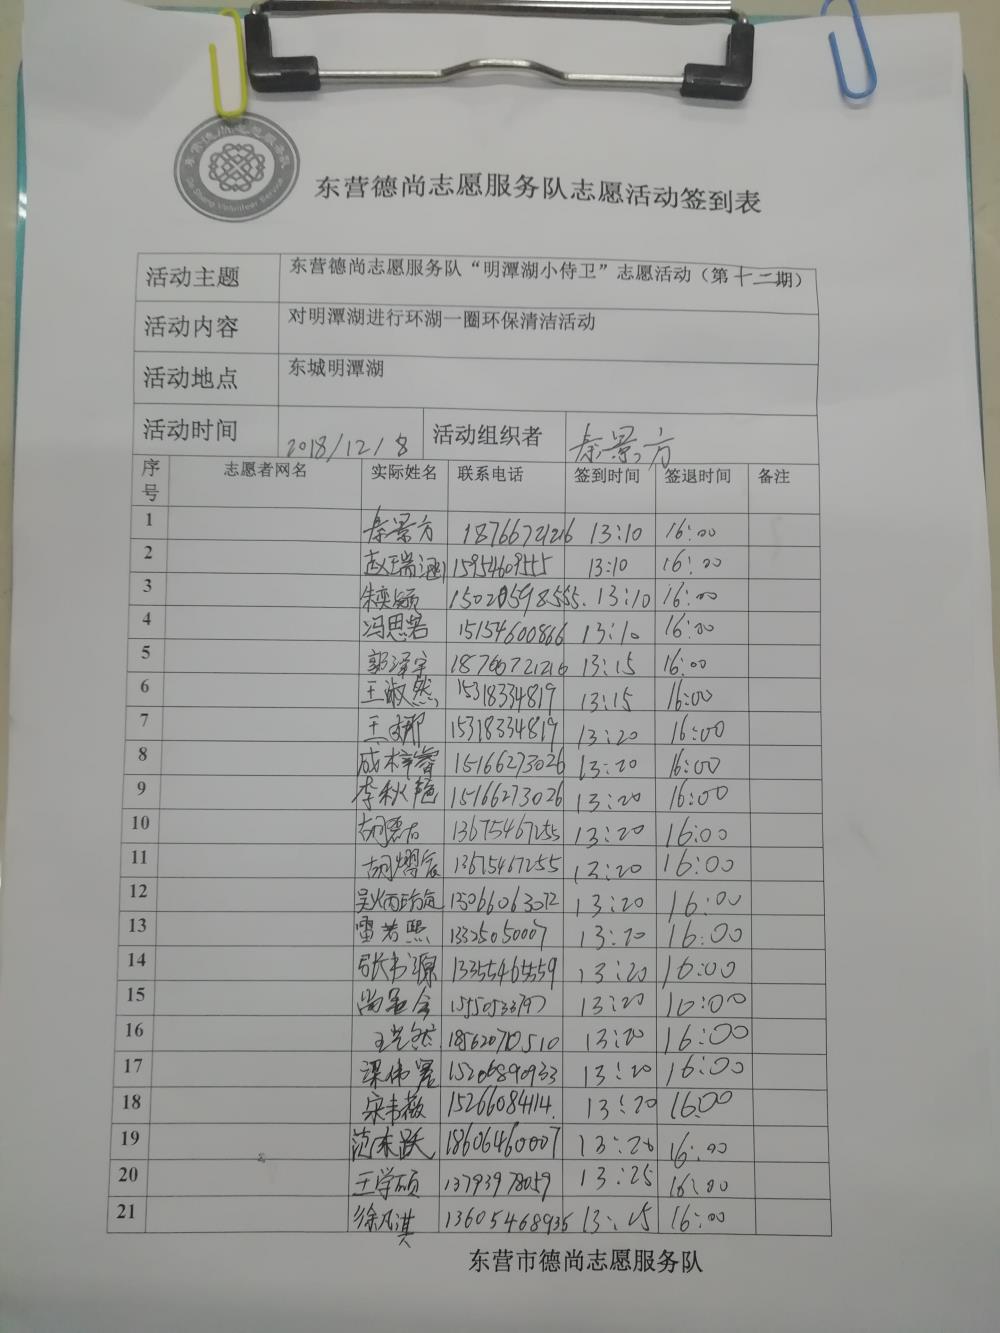 Volunteer Service
东营德尚志愿服务队志愿活动签到表
活动主题 东营德尚志愿服务队“明潭湖小侍卫”志愿活动（第十二期）
活动内容 对明潭湖进行环湖一圈环保清洁活动
活动地点 东城明潭湖
活动时间 2018/12/8 活动组织者 秦景方
序号 志愿者网名 实际姓名 联系电话 签到时间 签退时间 备注
1 秦景方 18766721216 13:10 16:00
2 赵瑞涵 15954609555 13:10 16:00
3 13:10 16:00
4 冯思若 15154600866 13:10 16:00
5 郭泽宇 18766721216 13:15 16:00
6 王淑然 15318334819 13:15 16:00
7 王娜 15318334819 13:20 16:00
8 成梓睿 15166273026 13:20 16:00
9 李秋艳 15166273026 13:20 16:00
10 13675467255 13:20 16:00
11 胡熠辰 13675467255 13:20 16:00
12 13:20 16:00
13 雷若熙 13325050007 13:20 16:00
14 张书源 13355465559 13:20 16:00
15 13:20 16:00
16 13:20 16:00
17 15206890933 13:20 16:00
18 宋韦薇 15266084114 13:20 16:00
19 范东跃 18606460007 13:20 16:00
20 王学硕 13793978059 13:25 16:00
21 徐凡淇 13605468935 13:25 16:00
东营市德尚志愿服务队